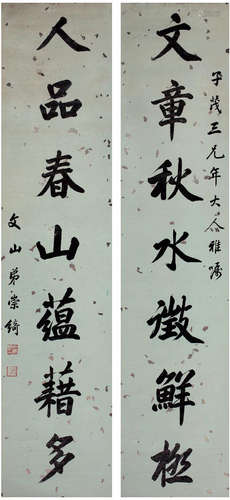 子茂三兄年大人雅屬
文章秋水澂鮮極
人品春山蘊藉多
文山弟崇綺